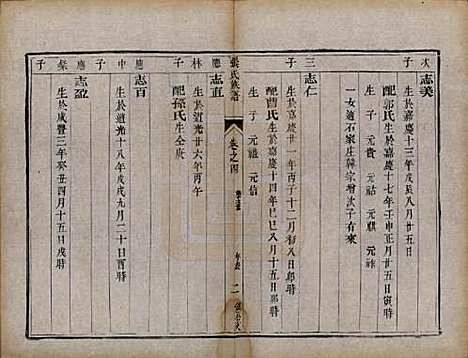 次子
志美
生於嘉慶十三年戊辰八月廿五日
配郭氏生嘉慶十七年壬申正月廿五日寅時
生子元貴 元祜 元祺 元祚
一女適石家庄韓宗增次子有來
三子
志仁
生於嘉慶廿一年丙子十二月初八日卯時
配曹氏生於嘉慶十四年己巳八月十五日卯時
生子元禮 元信
張氏族譜
卷之四
年表
二
應林子
志直
生於道光廿六年丙午
配孫氏生仝庚
應中子
志百
生於道光十八年戊戌九月二十日酉時
應聚子
志盈
生於咸豐三年癸丑四月十五日戌時